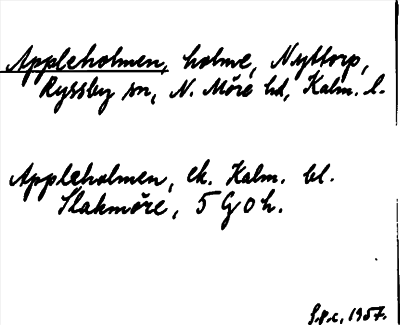 Appleholmen, holme, Nyttorp,
Ryssby sn, N. Möre hd, Kalm. l.
Appleholmen, ek. Kalm. bl.
Slakmöre, 5 G o h.
1957.